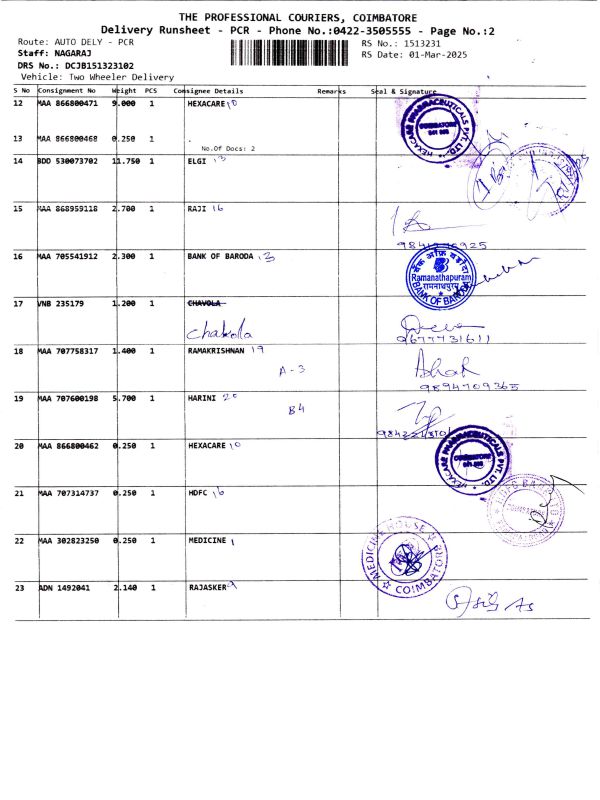 THE PROFESSIONAL COURIERS, COIMBATORE
Delivery Runsheet - PCR - Phone No.:0422-3505555 - Page No.:2
Route: AUTO DELY - PCR
RS No.: 1513231
Staff: NAGARAJ
RS Date: 01-Mar-2025
DRS No.: DCJB151323102
Vehicle: Two Wheeler Delivery
S No Consignment No Weight PCS Consignee Details Remarks Seal & Signature
12 MAA 866800471 9.000 1 HEXACARE 10
HEXACARE PHARMACEUTICALS PVT. LTD.
COIMBATORE
641 045
13 MAA 866800468 0.250 1 .
No.Of Docs: 2
14 BDD 530073702 11.750 1 ELGI 13
15 MAA 868959118 2.700 1 RAJI 16
16 MAA 705541912 2.300 1 BANK OF BARODA 13
बैंक ऑफ़ बड़ौदा
Ramanathapuram
रामनाथपुरम
BANK OF BARODA
17 VNB 235179 1.200 1 CHAVOLA
Chakolla
9677731611
18 MAA 707758317 1.400 1 RAMAKRISHNAN 19
A-3
9894709365
19 MAA 707600198 5.700 1 HARINI 20
B4
20 MAA 866800462 0.250 1 HEXACARE 10
HEXACARE PHARMACEUTICALS PVT. LTD.
COIMBATORE
641 045
21 MAA 707314737 0.250 1 HDFC 16
HDFC BANK LTD
22 MAA 302823250 0.250 1 MEDICINE 1
MEDICINE HOUSE
COIMBATORE
23 ADN 1492041 2.140 1 RAJASKER 9